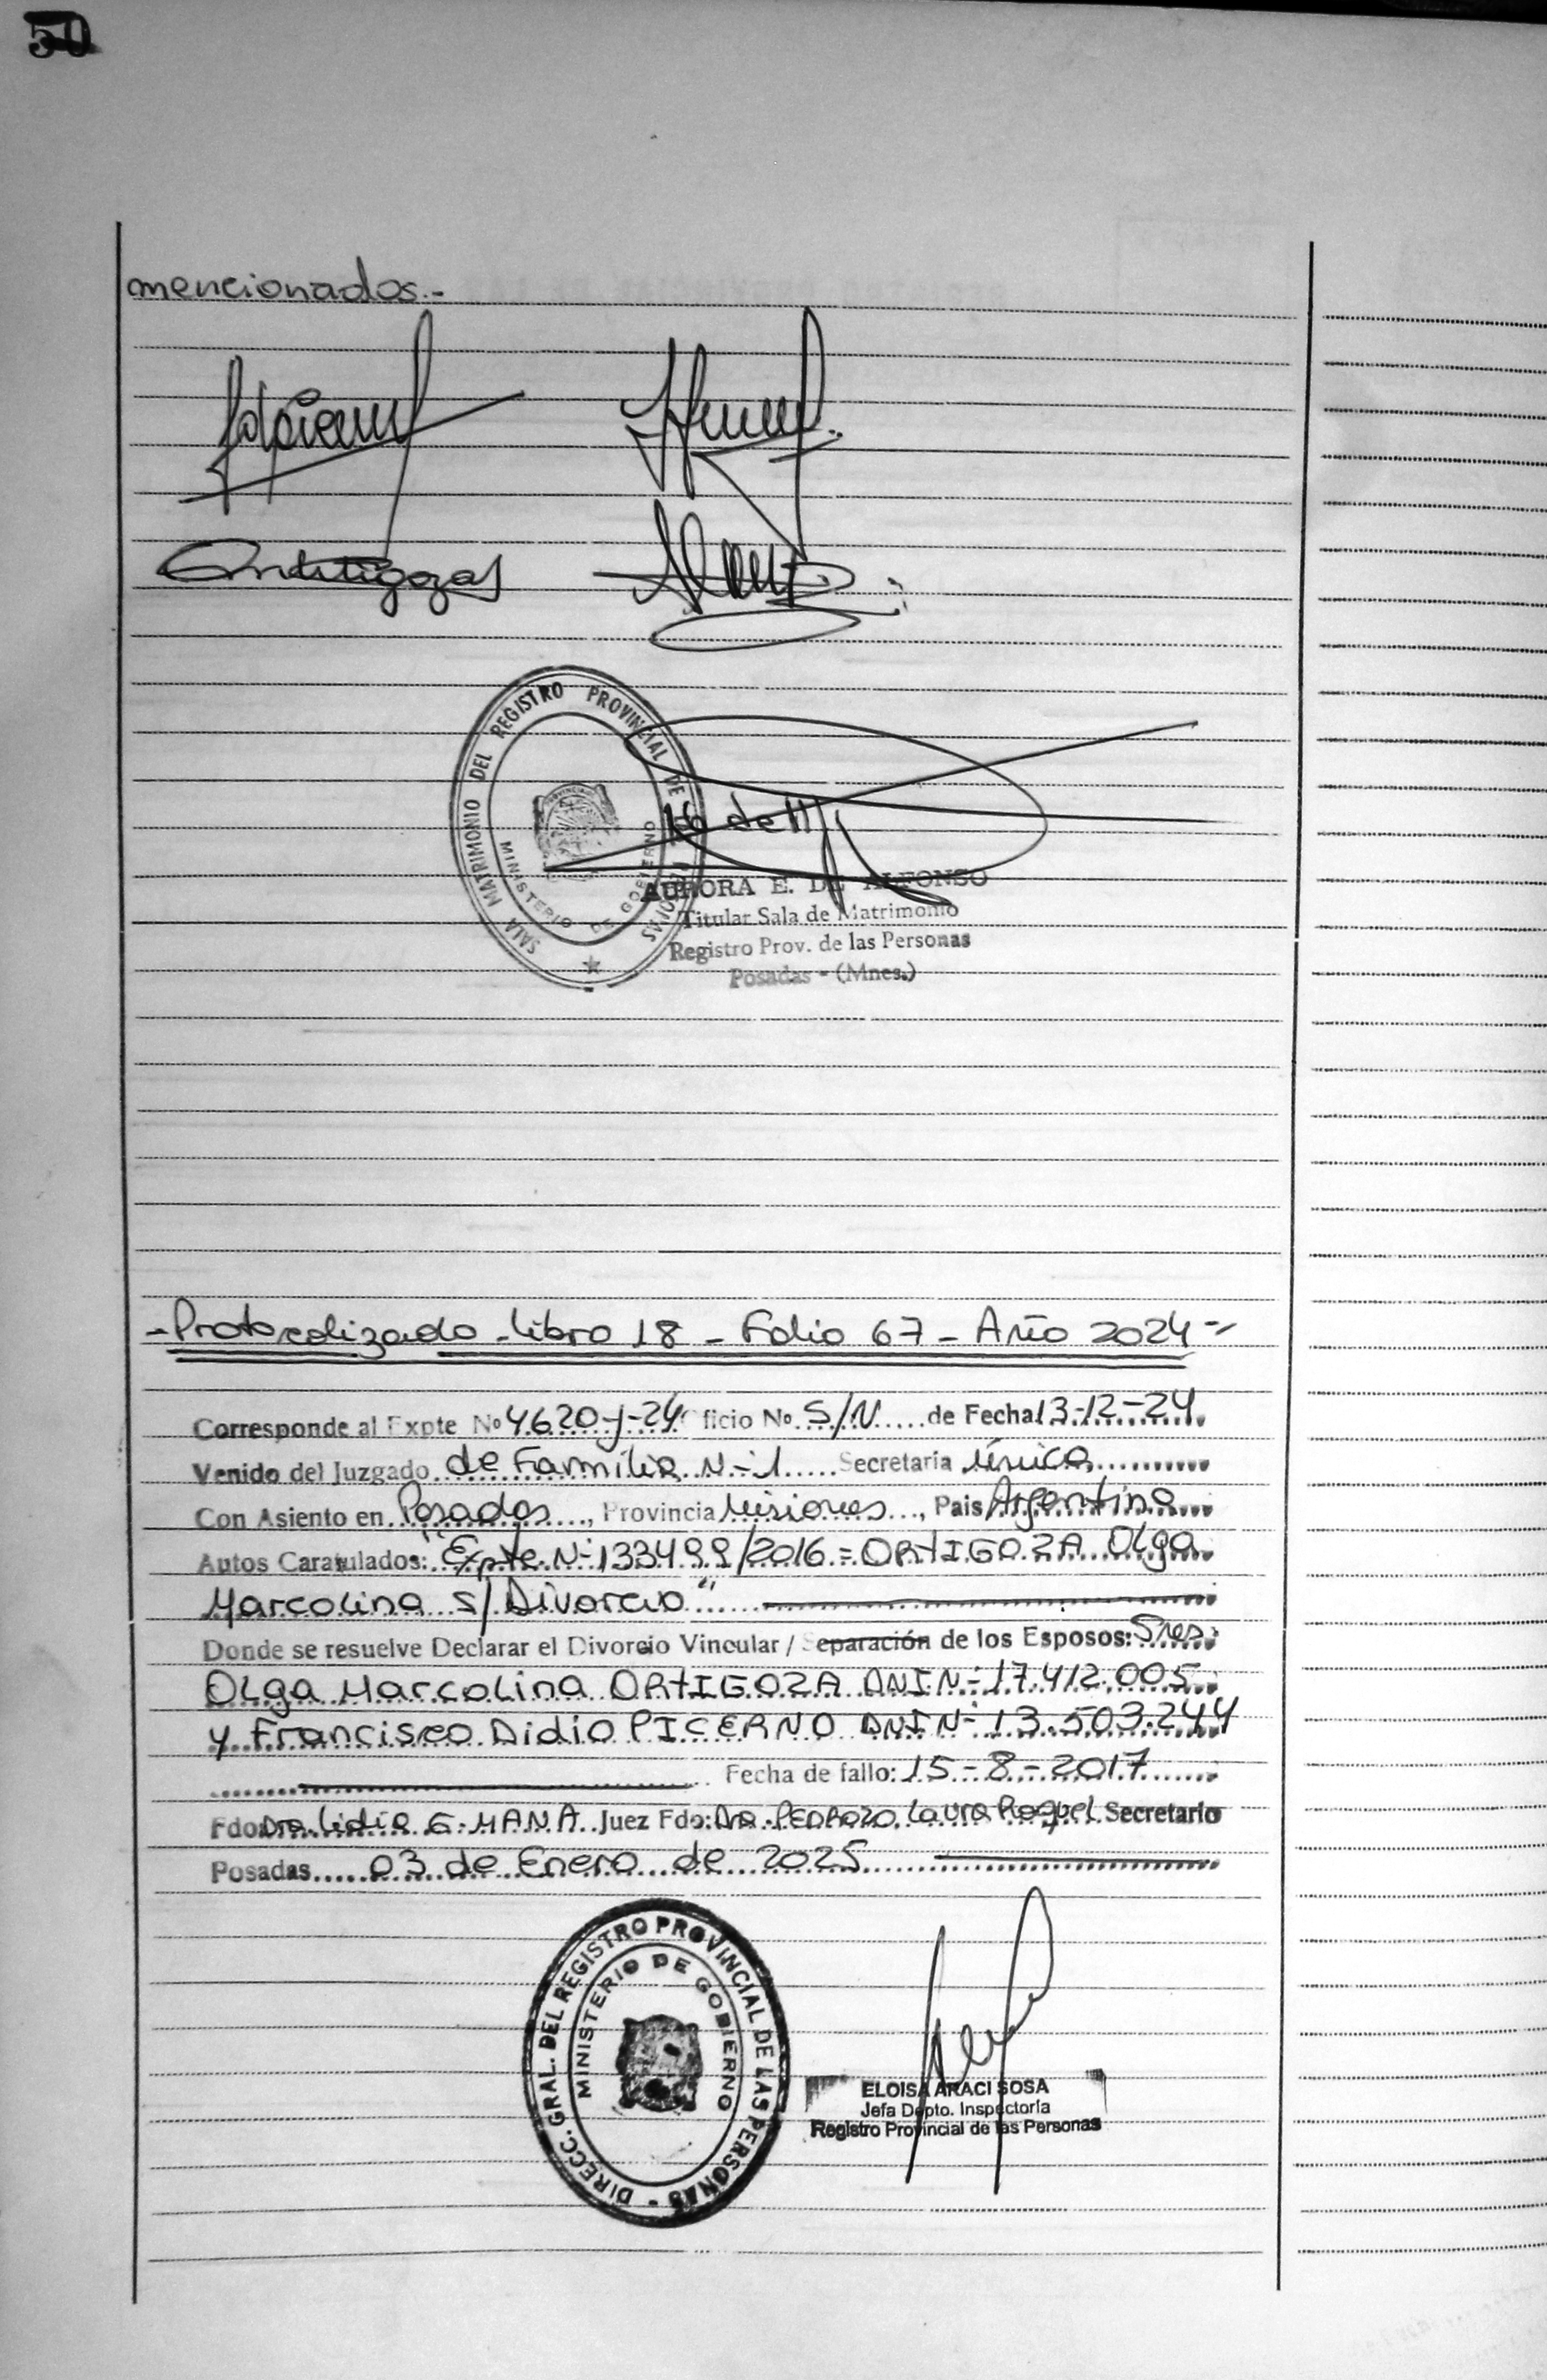 50
mencionados.-
SALA MATRIMONIO DEL REGISTRO PROVINCIAL DE
MINISTERIO DE GOBIERNO
AURORA E. DE ALFONSO
Titular Sala de Matrimonio
Registro Prov. de las Personas
Posadas - (Mnes.)
-Protocolizado-Libro 18 - Folio 67 - Año 2024-
Corresponde al Expte Nº 4620-J-24 ficio Nº S/N de Fecha 13-12-24
Venido del Juzgado de Familia N-1 Secretaría única
Con Asiento en Posadas, Provincia Misiones, Pais Argentina
Autos Caratulados: "Expte N- 133499/2016 = ORTIGOZA Olga
Marcolina s/Divorcio"
Donde se resuelve Declarar el Divorcio Vincular / Separación de los Esposos: Sres.
Olga Marcolina ORTIGOZA DNI N- 17.412.005
y Francisco Didio PICERNO DNI N- 13.503.244
Fecha de fallo: 15-8-2017
Fdo: Dra. Lidia G. MANA Juez Fdo: Dra. PEDROZO, Laura Raquel Secretario
Posadas 03 de Enero de 2025
DIRECC. GRAL. DEL REGISTRO PROVINCIAL DE LAS PERSONAS -
MINISTERIO DE GOBIERNO
ELOISA ARACI SOSA
Jefa Depto. Inspectoría
Registro Provincial de las Personas